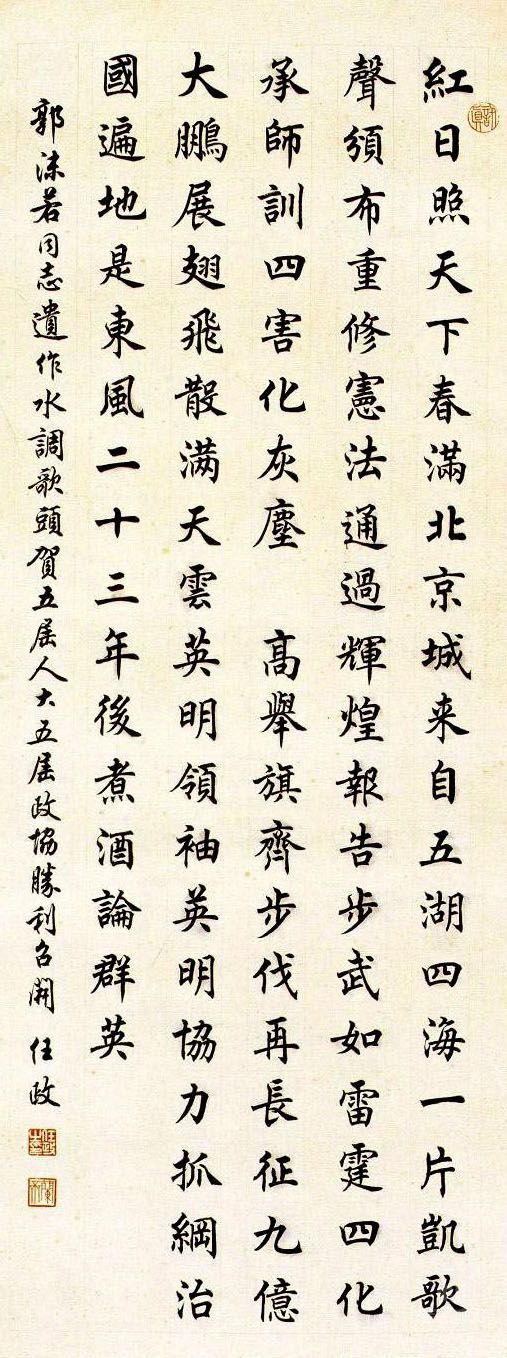 紅日照天下春滿北京城来自五湖四海一片凱歌
聲頒布重修憲法通過輝煌報告步武如雷霆四化
承師訓四害化灰塵　高舉旗齊步伐再長征九億
大鵬展翅飛散满天雲英明領袖英明協力抓綱治
國遍地是東風二十三年後煮酒論群英
郭沫若同志遺作水調歌頭賀五屆人大五屆政協勝利召開　任政